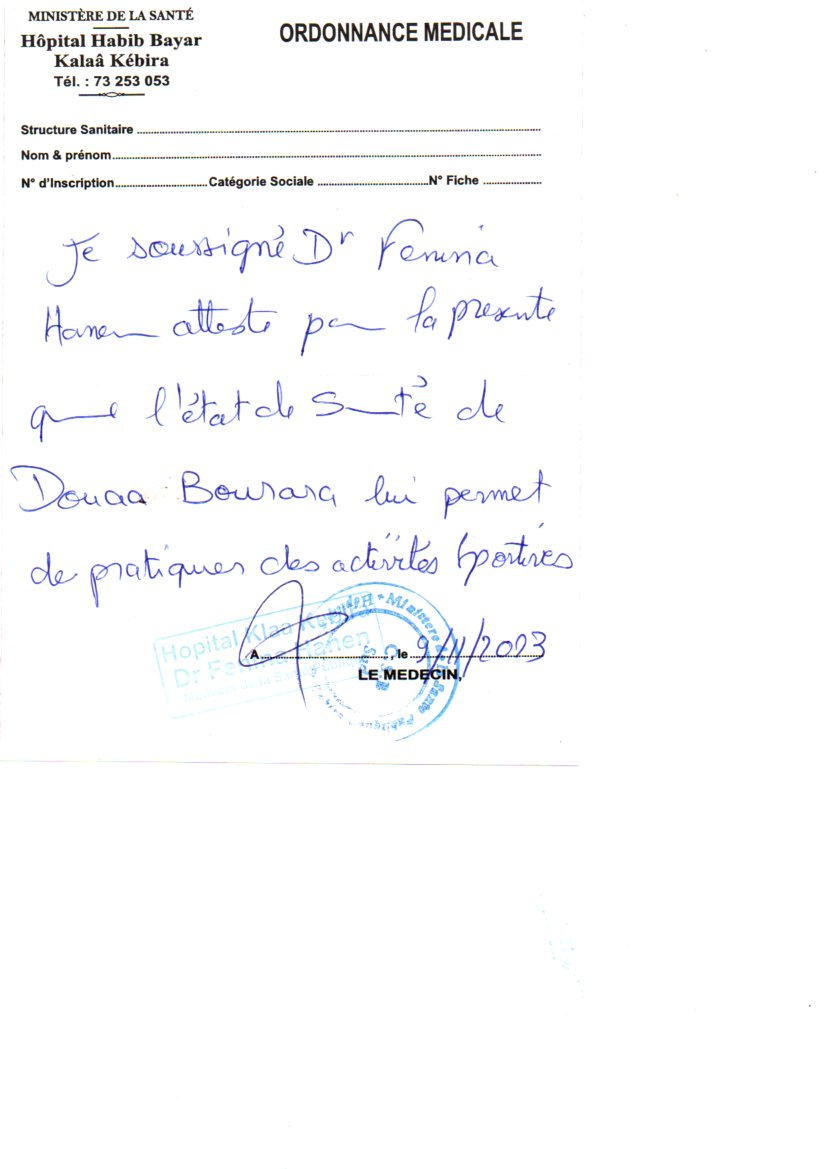 MINISTÈRE DE LA SANTÉ
Hôpital Habib Bayar
Kalaâ Kébira
Tél. : 73 253 053
ORDONNANCE MEDICALE
Structure Sanitaire
Nom & prénom
N° d'Inscription Catégorie Sociale N° Fiche
Je soussigné Dr Femma
Hanen atteste par la présente
que l'état de Santé de
Douaa Bourara lui permet
de pratiquer des activités Sportives
Hopital Klaa Kebira
Dr Femma Hanen
Médecin de la Santé Publique
Ministère de la Santé Publique
A , le 9/11/2023
LE MEDECIN,